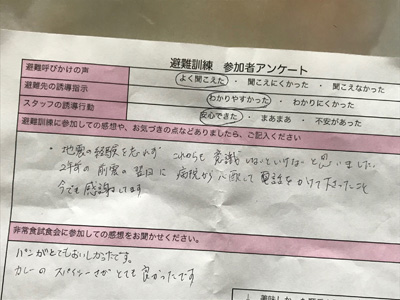 避難訓練 参加者アンケート
避難呼びかけの声 よく聞こえた ・ 聞こえにくかった ・ 聞こえなかった
避難先の誘導指示 わかりやすかった ・ わかりにくかった
スタッフの誘導行動 安心できた ・ まあまあ ・ 不安があった
避難訓練に参加しての感想や、お気づきの点などありましたら、ご記入ください
・地震の経験を忘れず これからも 意識しないといけないと思いました。
2年前の前震の翌日に 病院から心配して電話をかけて下さったこと
今でも感謝しています
非常食試食会に参加しての感想をお聞かせください。
パンがとてもおいしかったです。
カレーの スパイシーさが とても 良かったです